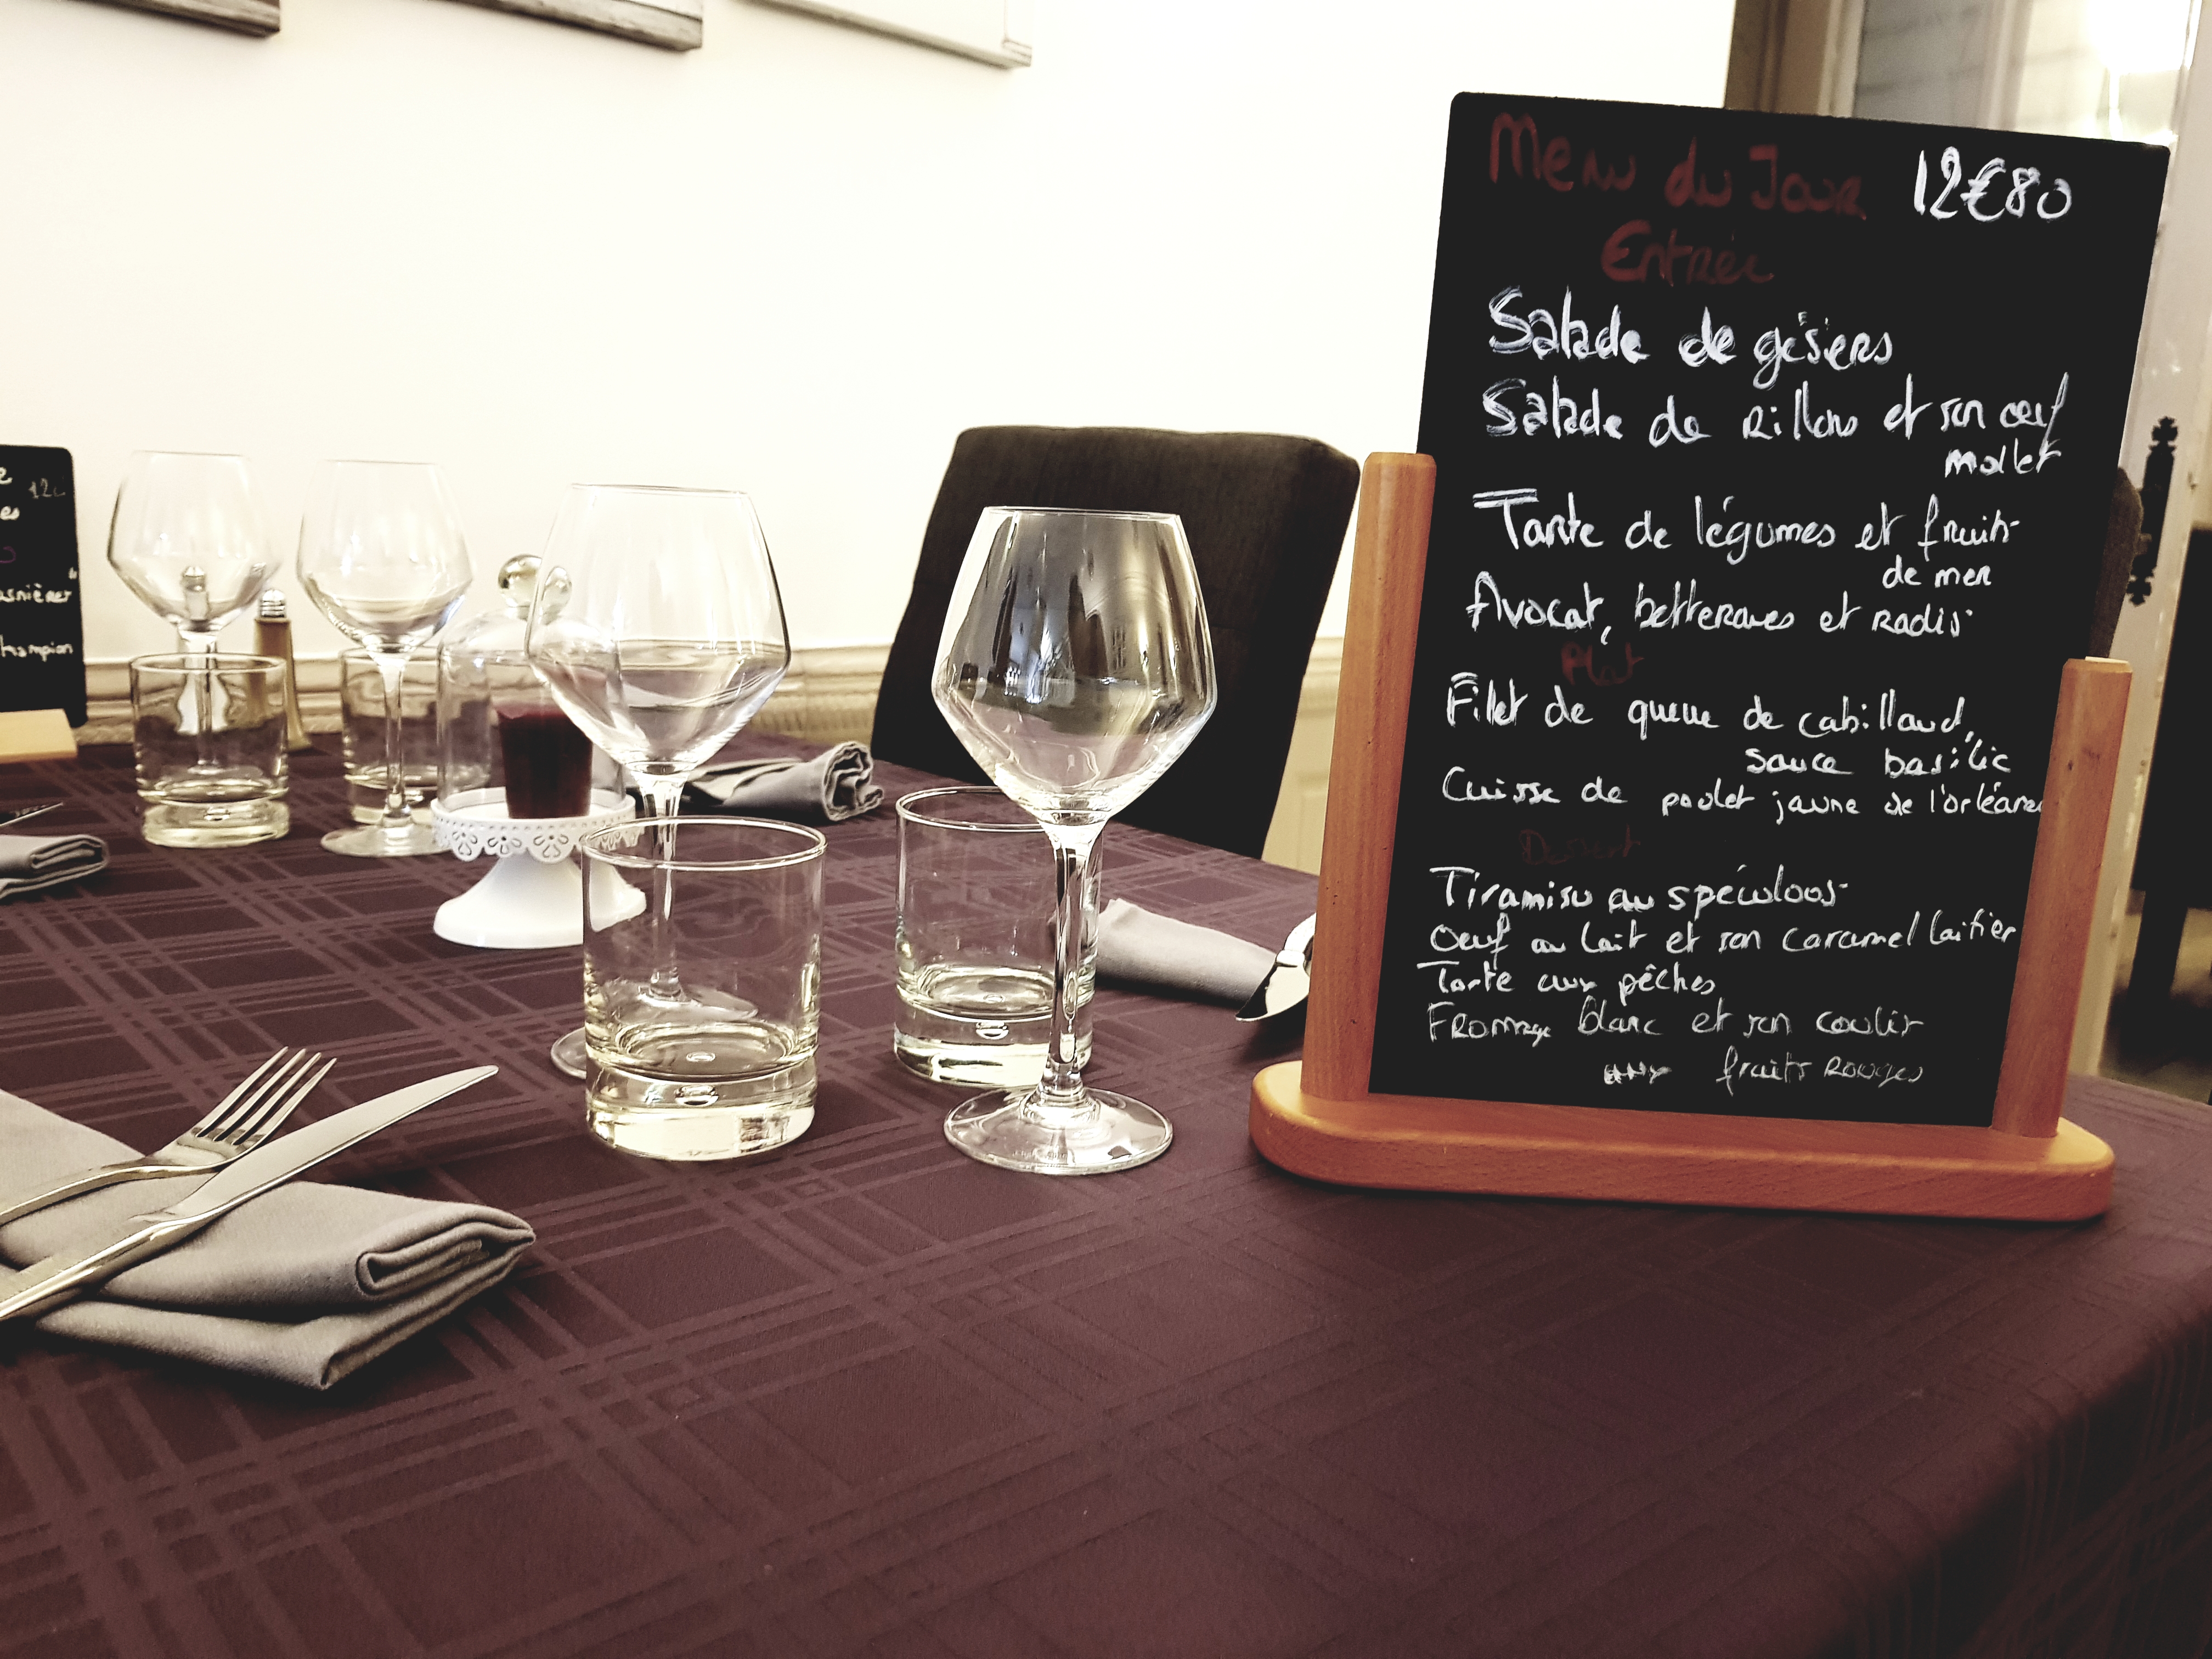 Menu du Jour 12€80
Entrée
Salade de gésiers
Salade de Rillons et son oeuf
mollet
Tarte de légumes et fruits
de mer
Avocat, betteraves et radis
Plat
Filet de queue de cabillaud,
sauce basilic
Cuisse de poulet jaune de l'orléanais
Dessert
Tiramisu au spéculoos
Oeuf au lait et son caramel laitier
Tarte aux pêches
Fromage blanc et son coulis
fruits Rouges
12€